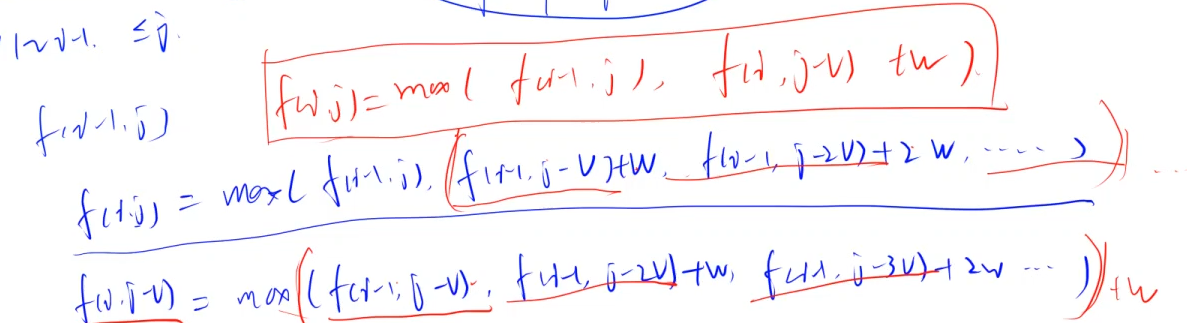 1~i-1. ≤j.
f(i,j)=max( f(i-1,j), f(i,j-v)+w )
f(i-1,j)
f(i,j) = max( f(i-1,j), f(i-1,j-v)+w, f(i-1,j-2v)+2w, ..... ) ...
f(i,j-v) = max( f(i-1,j-v), f(i-1,j-2v)+w, f(i-1,j-3v)+2w ... ) +w